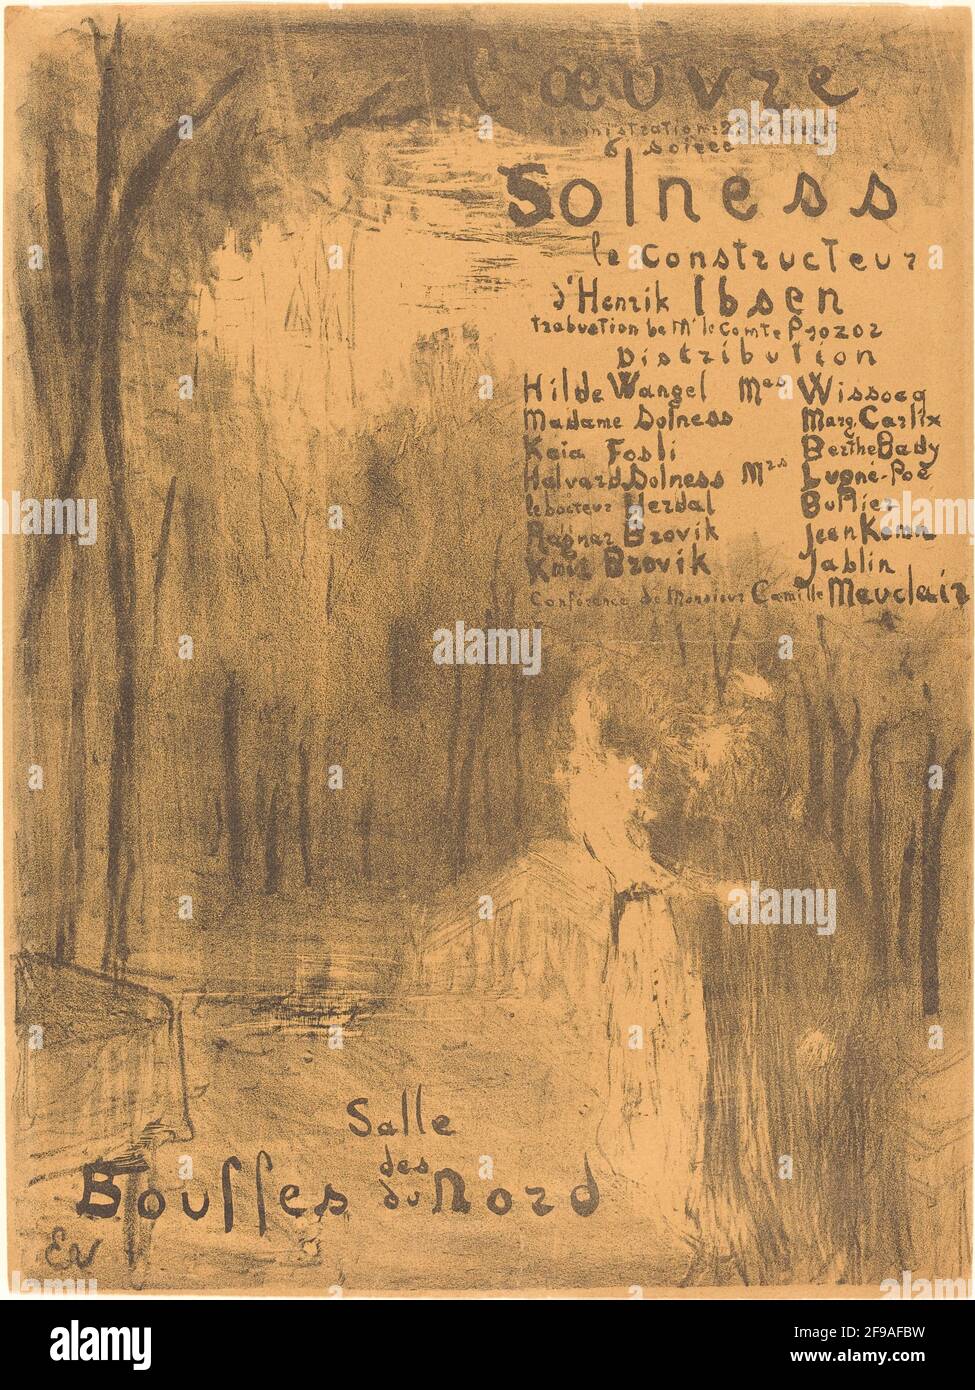 l'œuvre
administration: 2
6e soiree
Solness
le constructeur
d'Henrik Ibsen
traduction de Mr le Comte Prozor
Distribution
Hilde Wangel Mes Wissocq
Madame Solness Marg. Carlix
Kaia Fosli Berthe Bady
Halvard Solness Mrs Lugné-Poë
le docteur Herdal
Ragnar Brovik
Brovik Jablin
Conférence de Monsieur Camille Mauclair
Salle
des
Bouffes du Nord
EV
alamy
Image ID: 2F9AFBW
www.alamy.com